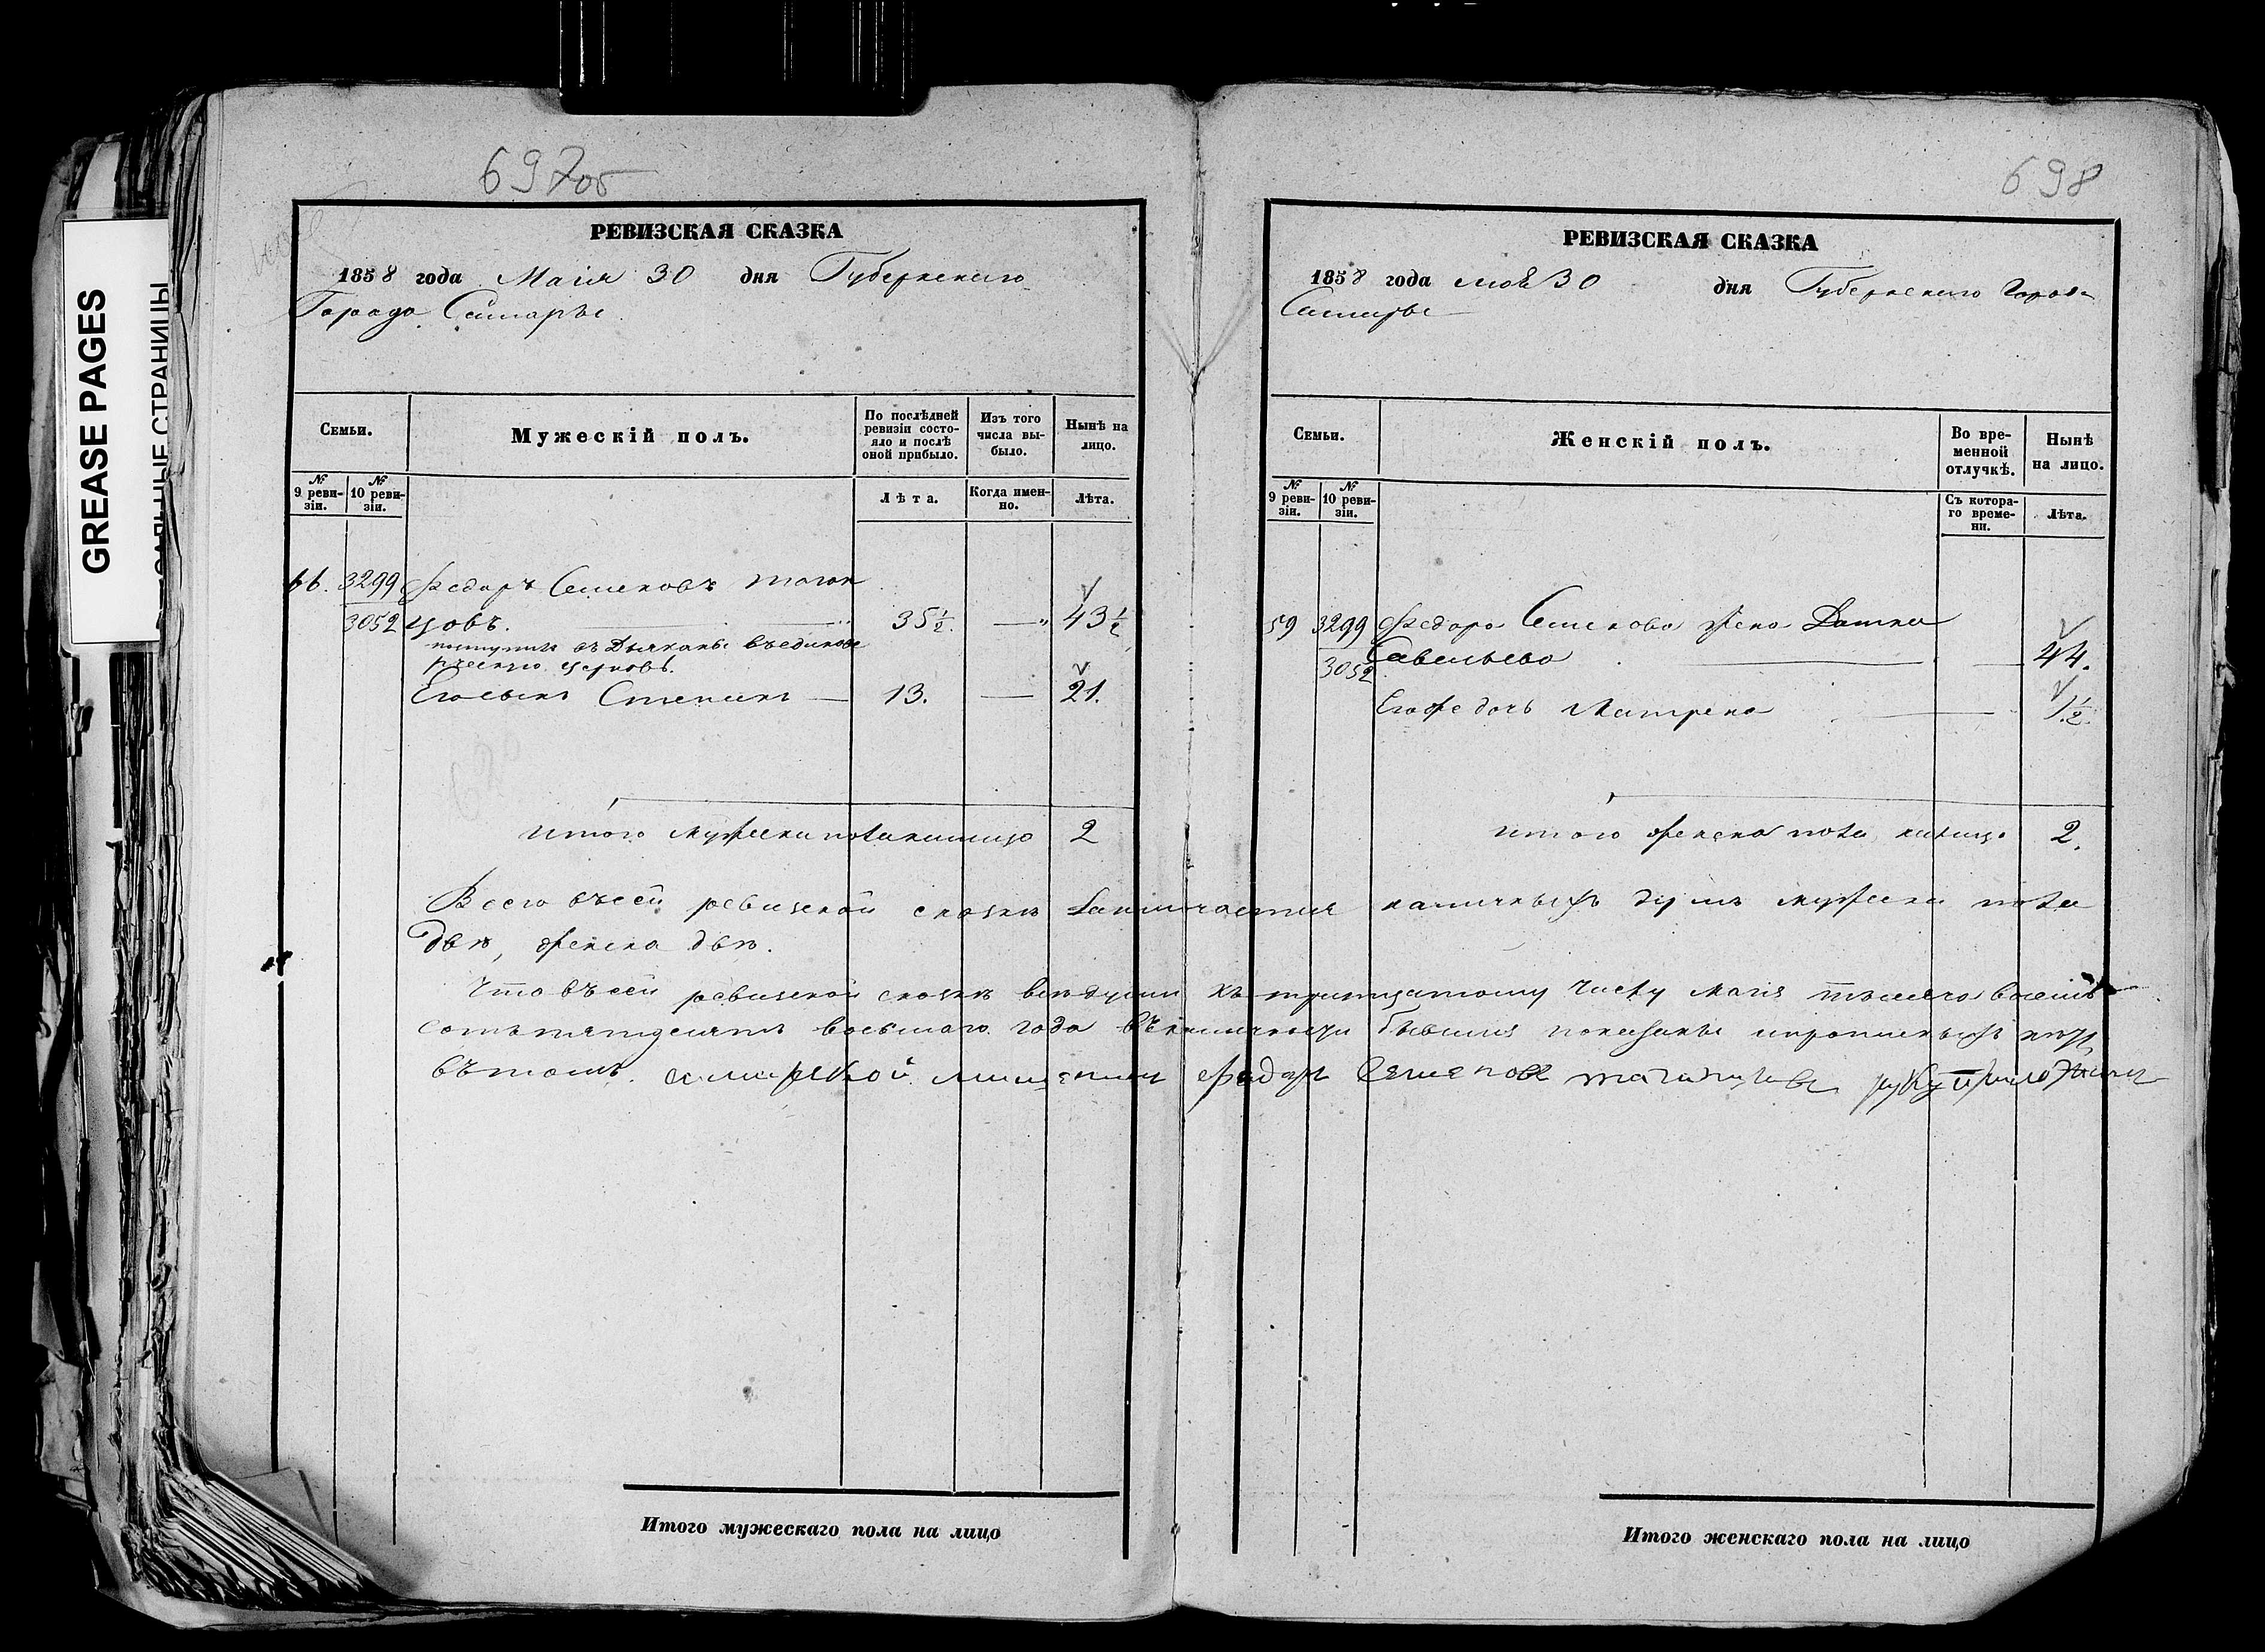 GREASE PAGES
САЛЬНЫЕ СТРАНИЦЫ
697об
РЕВИЗСКАЯ СКАЗКА
1858 года Маія 30 дня Губернскаго
Города Самары
Семьи.
Мужескій полъ.
По послѣдней ревизіи состояло и послѣ оной прибыло.
Изъ того числа выбыло.
Нынѣ на лицо.
№ 9 ревизіи.
№ 10 ревизіи.
Лѣта.
Когда именно.
Лѣта.
66. 3299 Федоръ Семеновъ
3052 цовъ. 35 ½ — 43 ½
поступилъ въ Дьяконы въ единове
рческую церковь.
Его сынъ Степанъ — 13. — 21.
итого мужеска пола налицо 2
Итого мужескаго пола на лицо
698
РЕВИЗСКАЯ СКАЗКА
1858 года мая 30 дня Губернскаго Города
Самары
Семьи.
Женскій полъ.
Во временной отлучкѣ.
Нынѣ на лицо.
№ 9 ревизіи.
№ 10 ревизіи.
Съ котораго времени.
Лѣта.
59 3299 Федора Семенова жена
3052 Савельева — 44.
Его же дочь Матрена — 1 ½.
итого женска пола налицо 2.
Всего въ сей ревизской сказкѣ наличныхъ душъ мужеска пола
двѣ, женска двѣ.
Что въ сей ревизской сказкѣ всѣ души къ тридцатому числу Маія тысяча восемь
сотъ пятдесятъ восьмаго года въ наличности бывшія показаны и прописныхъ нѣтъ
въ томъ. самарской мещенин Федор Семенов руку приложил
Итого женскаго пола на лицо